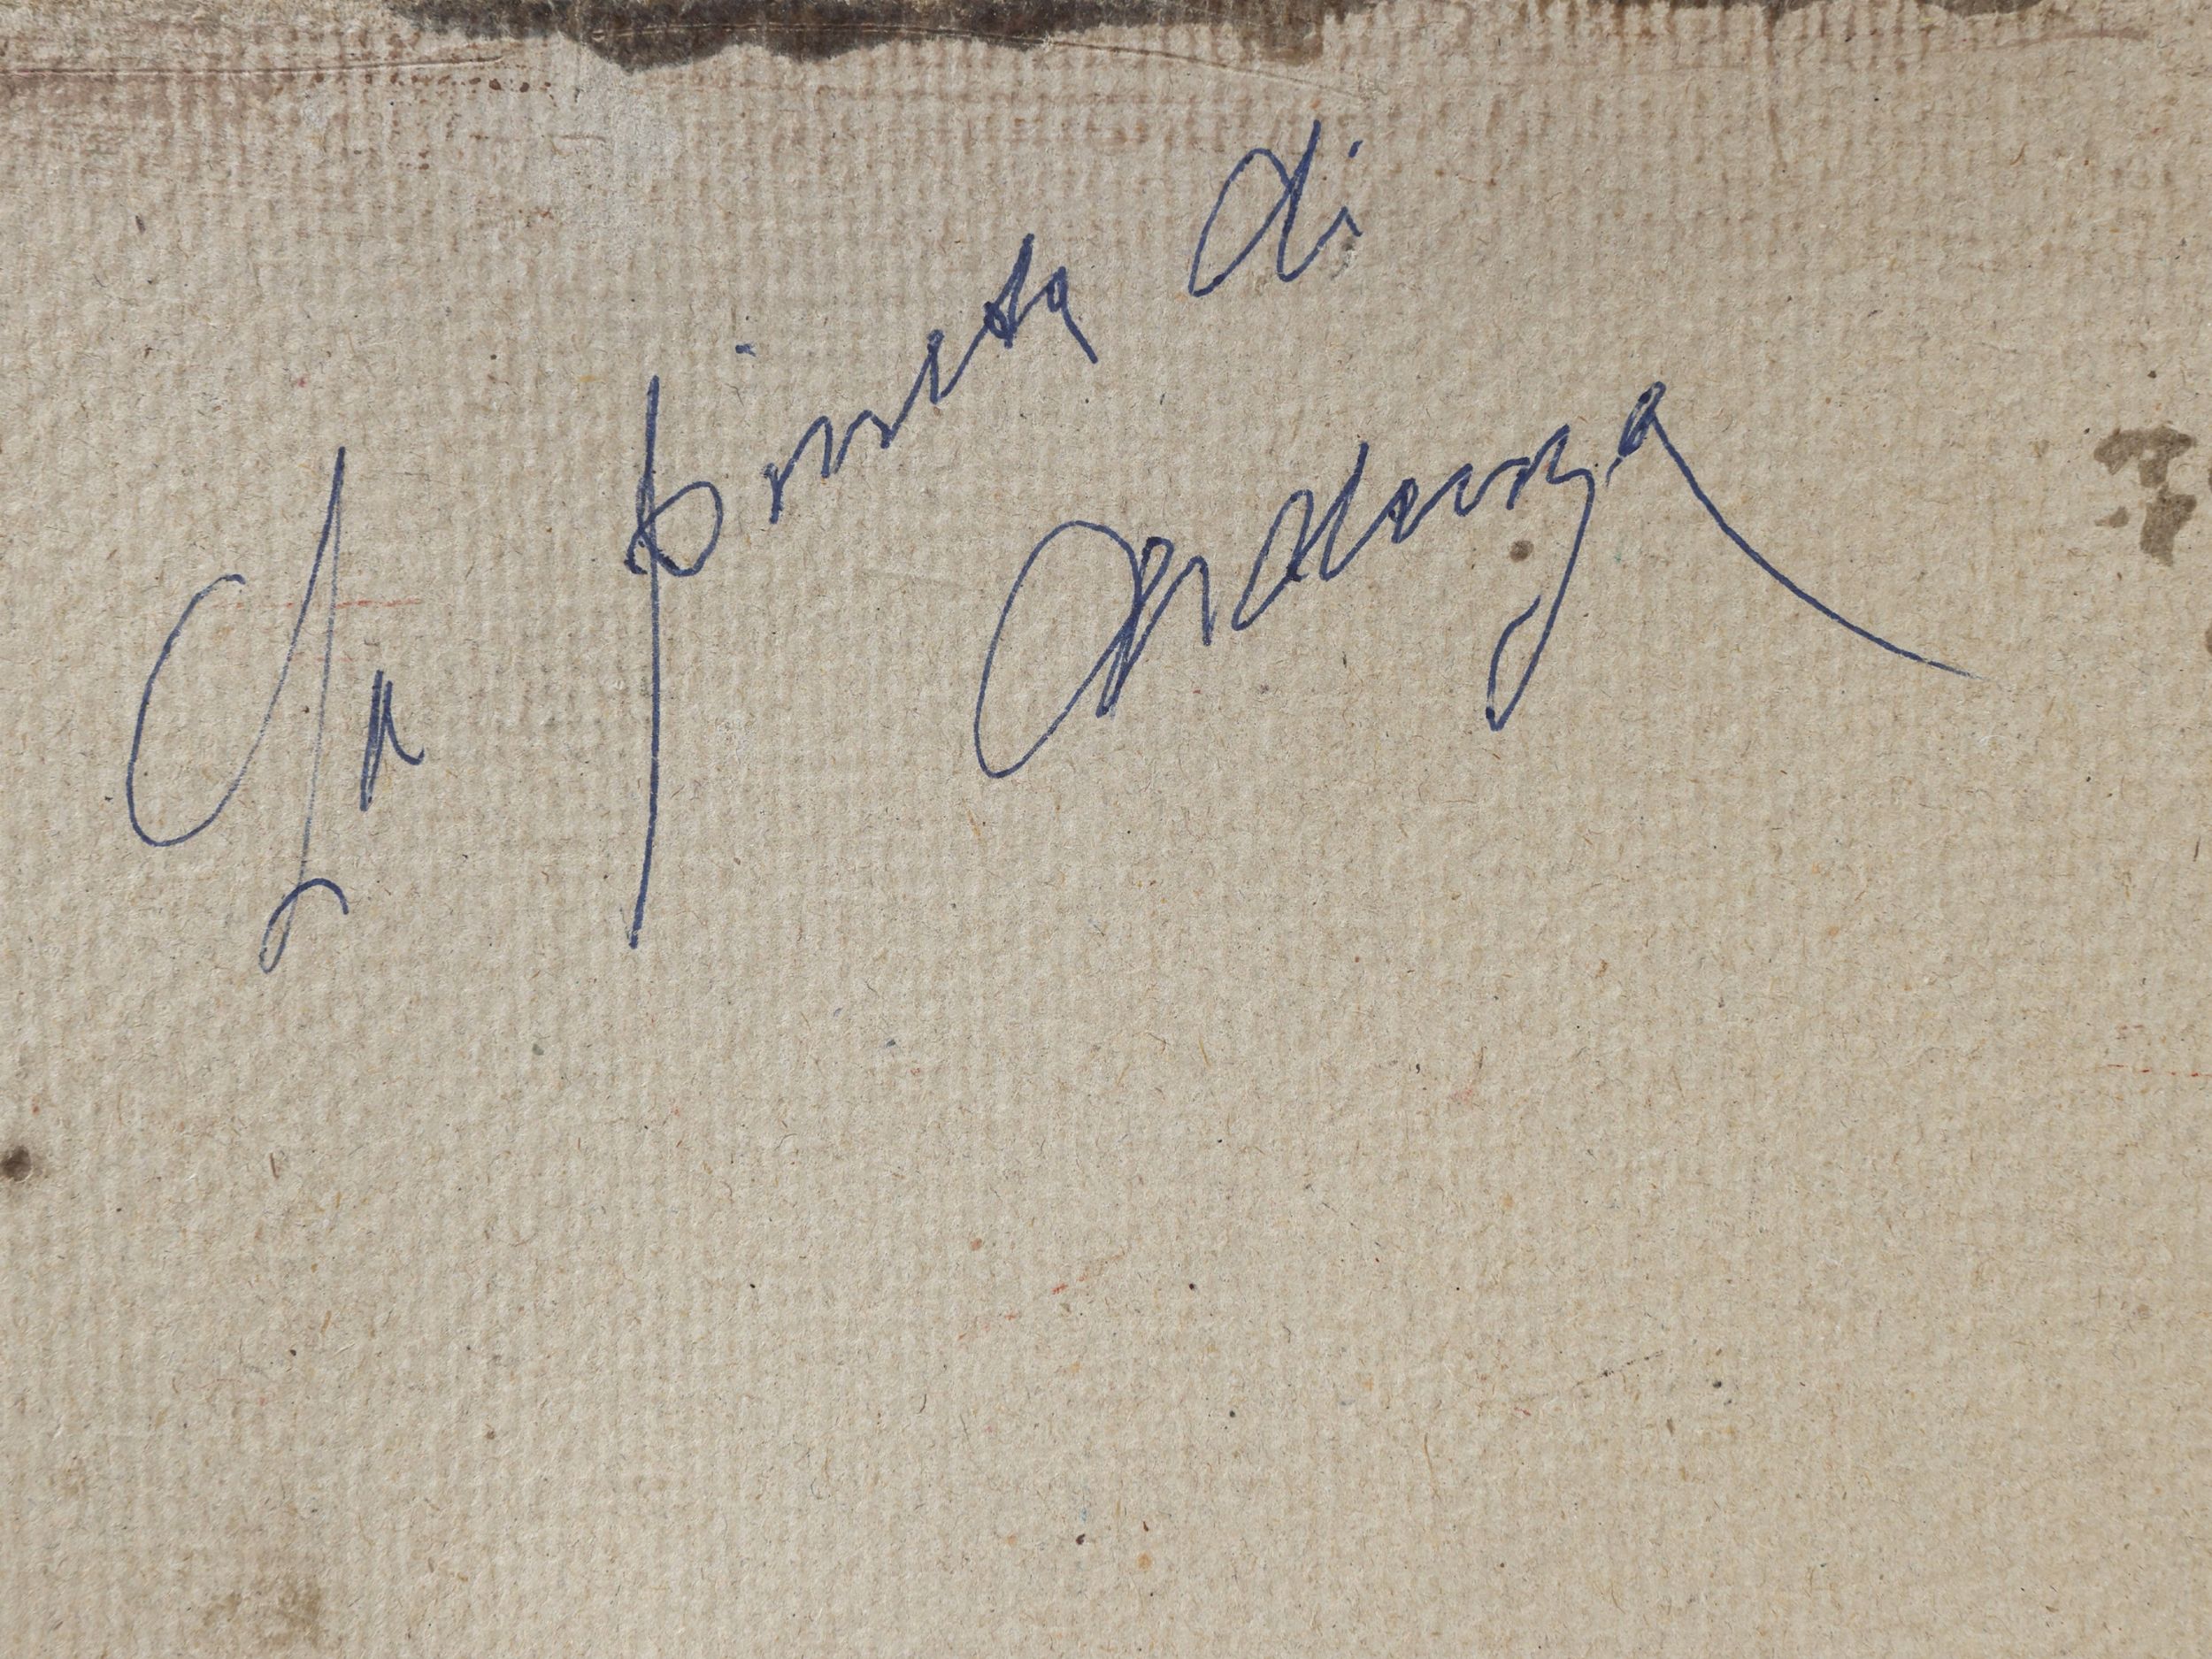 La pineta di
Ardenza